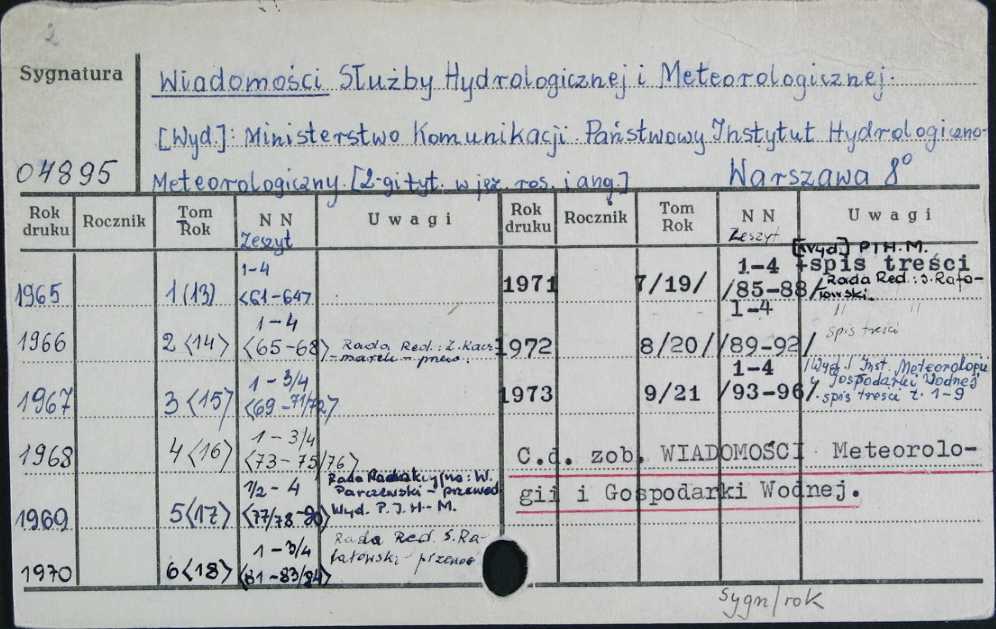 2
Sygnatura
Wiadomości Służby Hydrologicznej i Meteorologicznej.
[Wyd.]: Ministerstwo Komunikacji Państwowy Instytut Hydrologiczno-
04895
Meteorologiczny. [2-gi tyt. w jęz. ros. i ang.] Warszawa 8°
Rok druku Rocznik Tom Rok NN Zeszyt Uwagi
1965 1(13) 1-4 <61-64>
1966 2<14> 1-4 <65-68> Rada Red.: Z. Kacz-
marek - przew.
1967 3<15> 1-3/4 <69-71/72>
1968 4<16> 1-3/4 <73-75/76>
1969 5<17> 1/2-4 <77/78-80> Rada Redakcyjna: W.
Parczewski - przewod
Wyd. P.I.H-M.
1970 6<18> 1-3/4 <81-83/84> Rada Red. S. Ra-
fałowski - przewo
Rok druku Rocznik Tom Rok NN Zeszyt Uwagi
[Wyd.] PIH-M.
1971 7/19/ 1-4 /85-88/ +spis treści
Rada Red.: S. Rafa-
łowski.
1972 8/20/ 1-4 /89-92/ " "
spis treści
1973 9/21 1-4 /93-96/ /Wyd./ Inst. Meteorologii
i Gospodarki Wodnej
spis treści z. 1-9
C.d. zob. WIADOMOŚCI Meteorolo-
gii i Gospodarki Wodnej.
sygn/rok